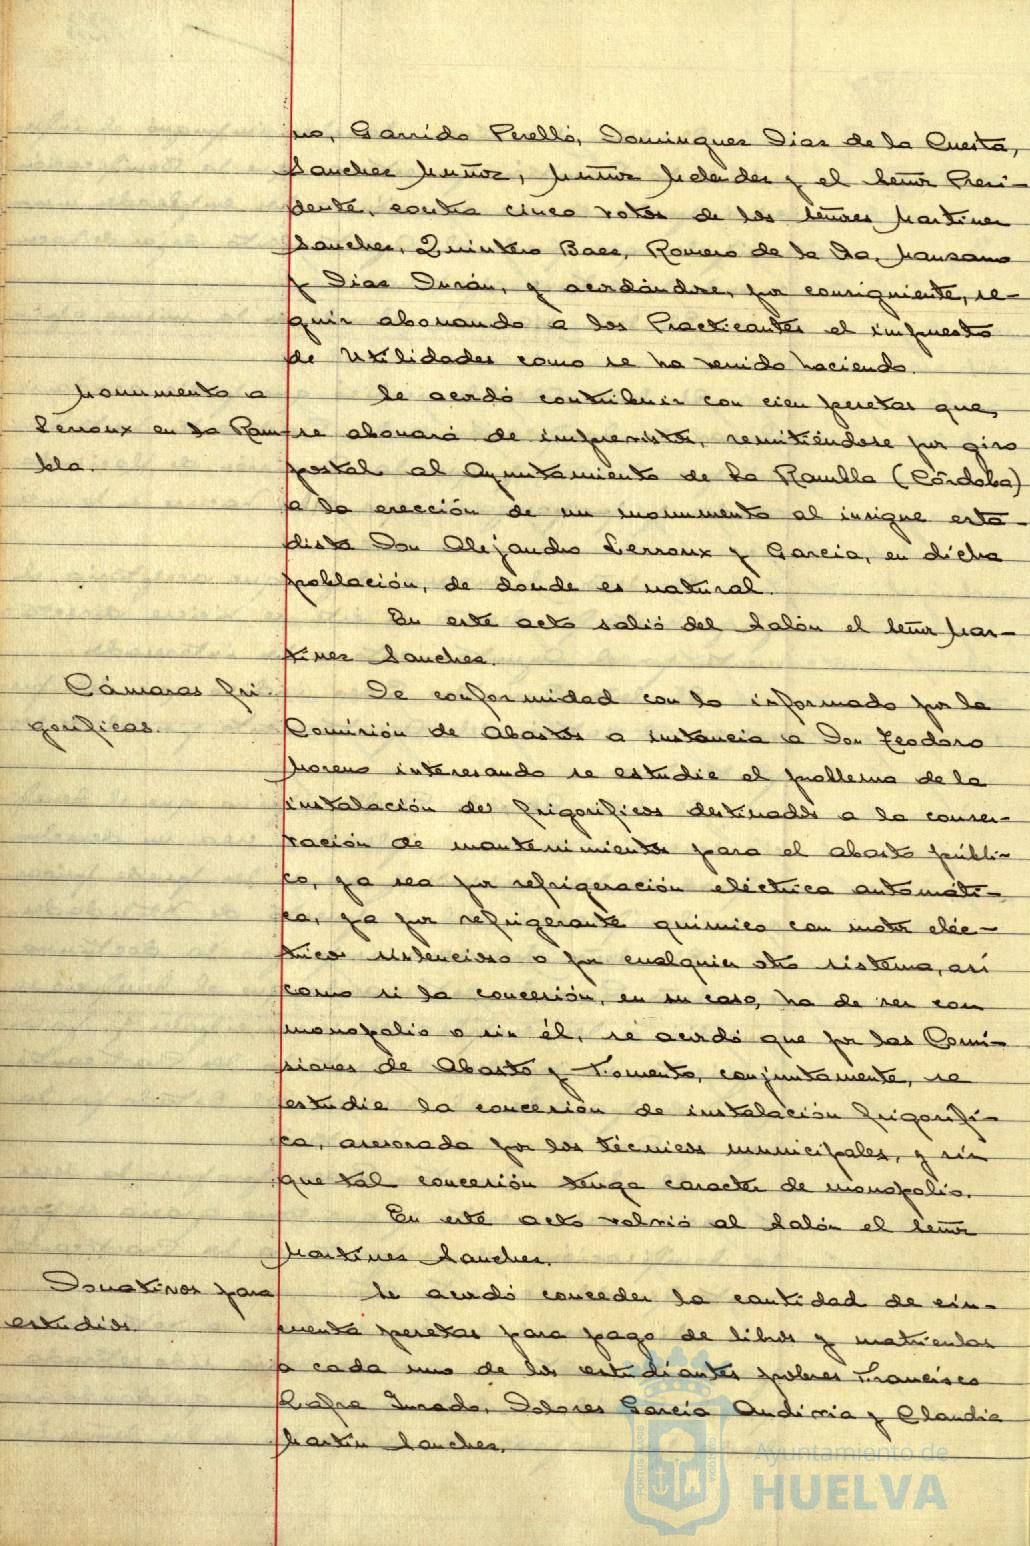 no, Garrido Perelló, Dominguez Diaz de la Cuesta,
Sanchez Muñoz, Muñoz Melendez y el Señor Presi-
dente, contra cinco votos de los Señores Martinez
Sanchez, Quintero Baez, Romero de la Osa, Manzano
y Diaz Durán, y acordándose, por consiguiente, se-
guir abonando a los Practicantes el impuesto
de Utilidades como se ha venido haciendo.
Monumento a
Lerroux en la Ram-
bla.
Se acordó contribuir con cien pesetas que,
se abonará de imprevistos, remitiéndose por giro
postal al Ayuntamiento de La Rambla (Córdoba)
a la erección de un monumento al insigne esta-
dista Don Alejandro Lerroux y Garcia, en dicha
población, de donde es natural.
En este acto salió del Salón el Señor Mar-
tinez Sanchez.
Cámaras fri-
gorificas.
De conformidad con lo informado por la
Comisión de Abastos a instancia a Don Teodoro
Moreno interesando se estudie el problema de la
instalación de frigorificos destinados a la conser-
vación de mantenimientos para el abasto públi-
co, ya sea por refrigeración eléctrica automáti-
ca, ya por refrigerante quimico con motor eléc-
trico silencioso o por cualquier otro sistema, asi
como si la concesión, en su caso, ha de ser con
monopolio o sin él, se acordó que por las Comi-
siones de Abasto y Fomento, conjuntamente, se
estudie la concesión de instalación frigorifi-
ca, asesorada por los técnicos municipales, y sin
que tal concesión tenga caracter de monopolio.
En este acto volvió al Salón el Señor
Martinez Sanchez.
Donativos para
estudios.
Se acordó conceder la cantidad de cin-
cuenta pesetas para pago de libros y matriculas
a cada uno de los estudiantes pobres Francisco
Lafra Jurado, Dolores Garcia Andivia y Claudia
Martin Sanchez.
Ayuntamiento de
HUELVA